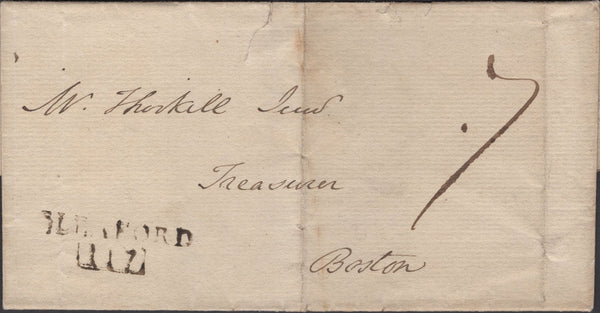 Mr. Thorkill Jun.r
Treasurer
Boston
7
SLEAFORD
117